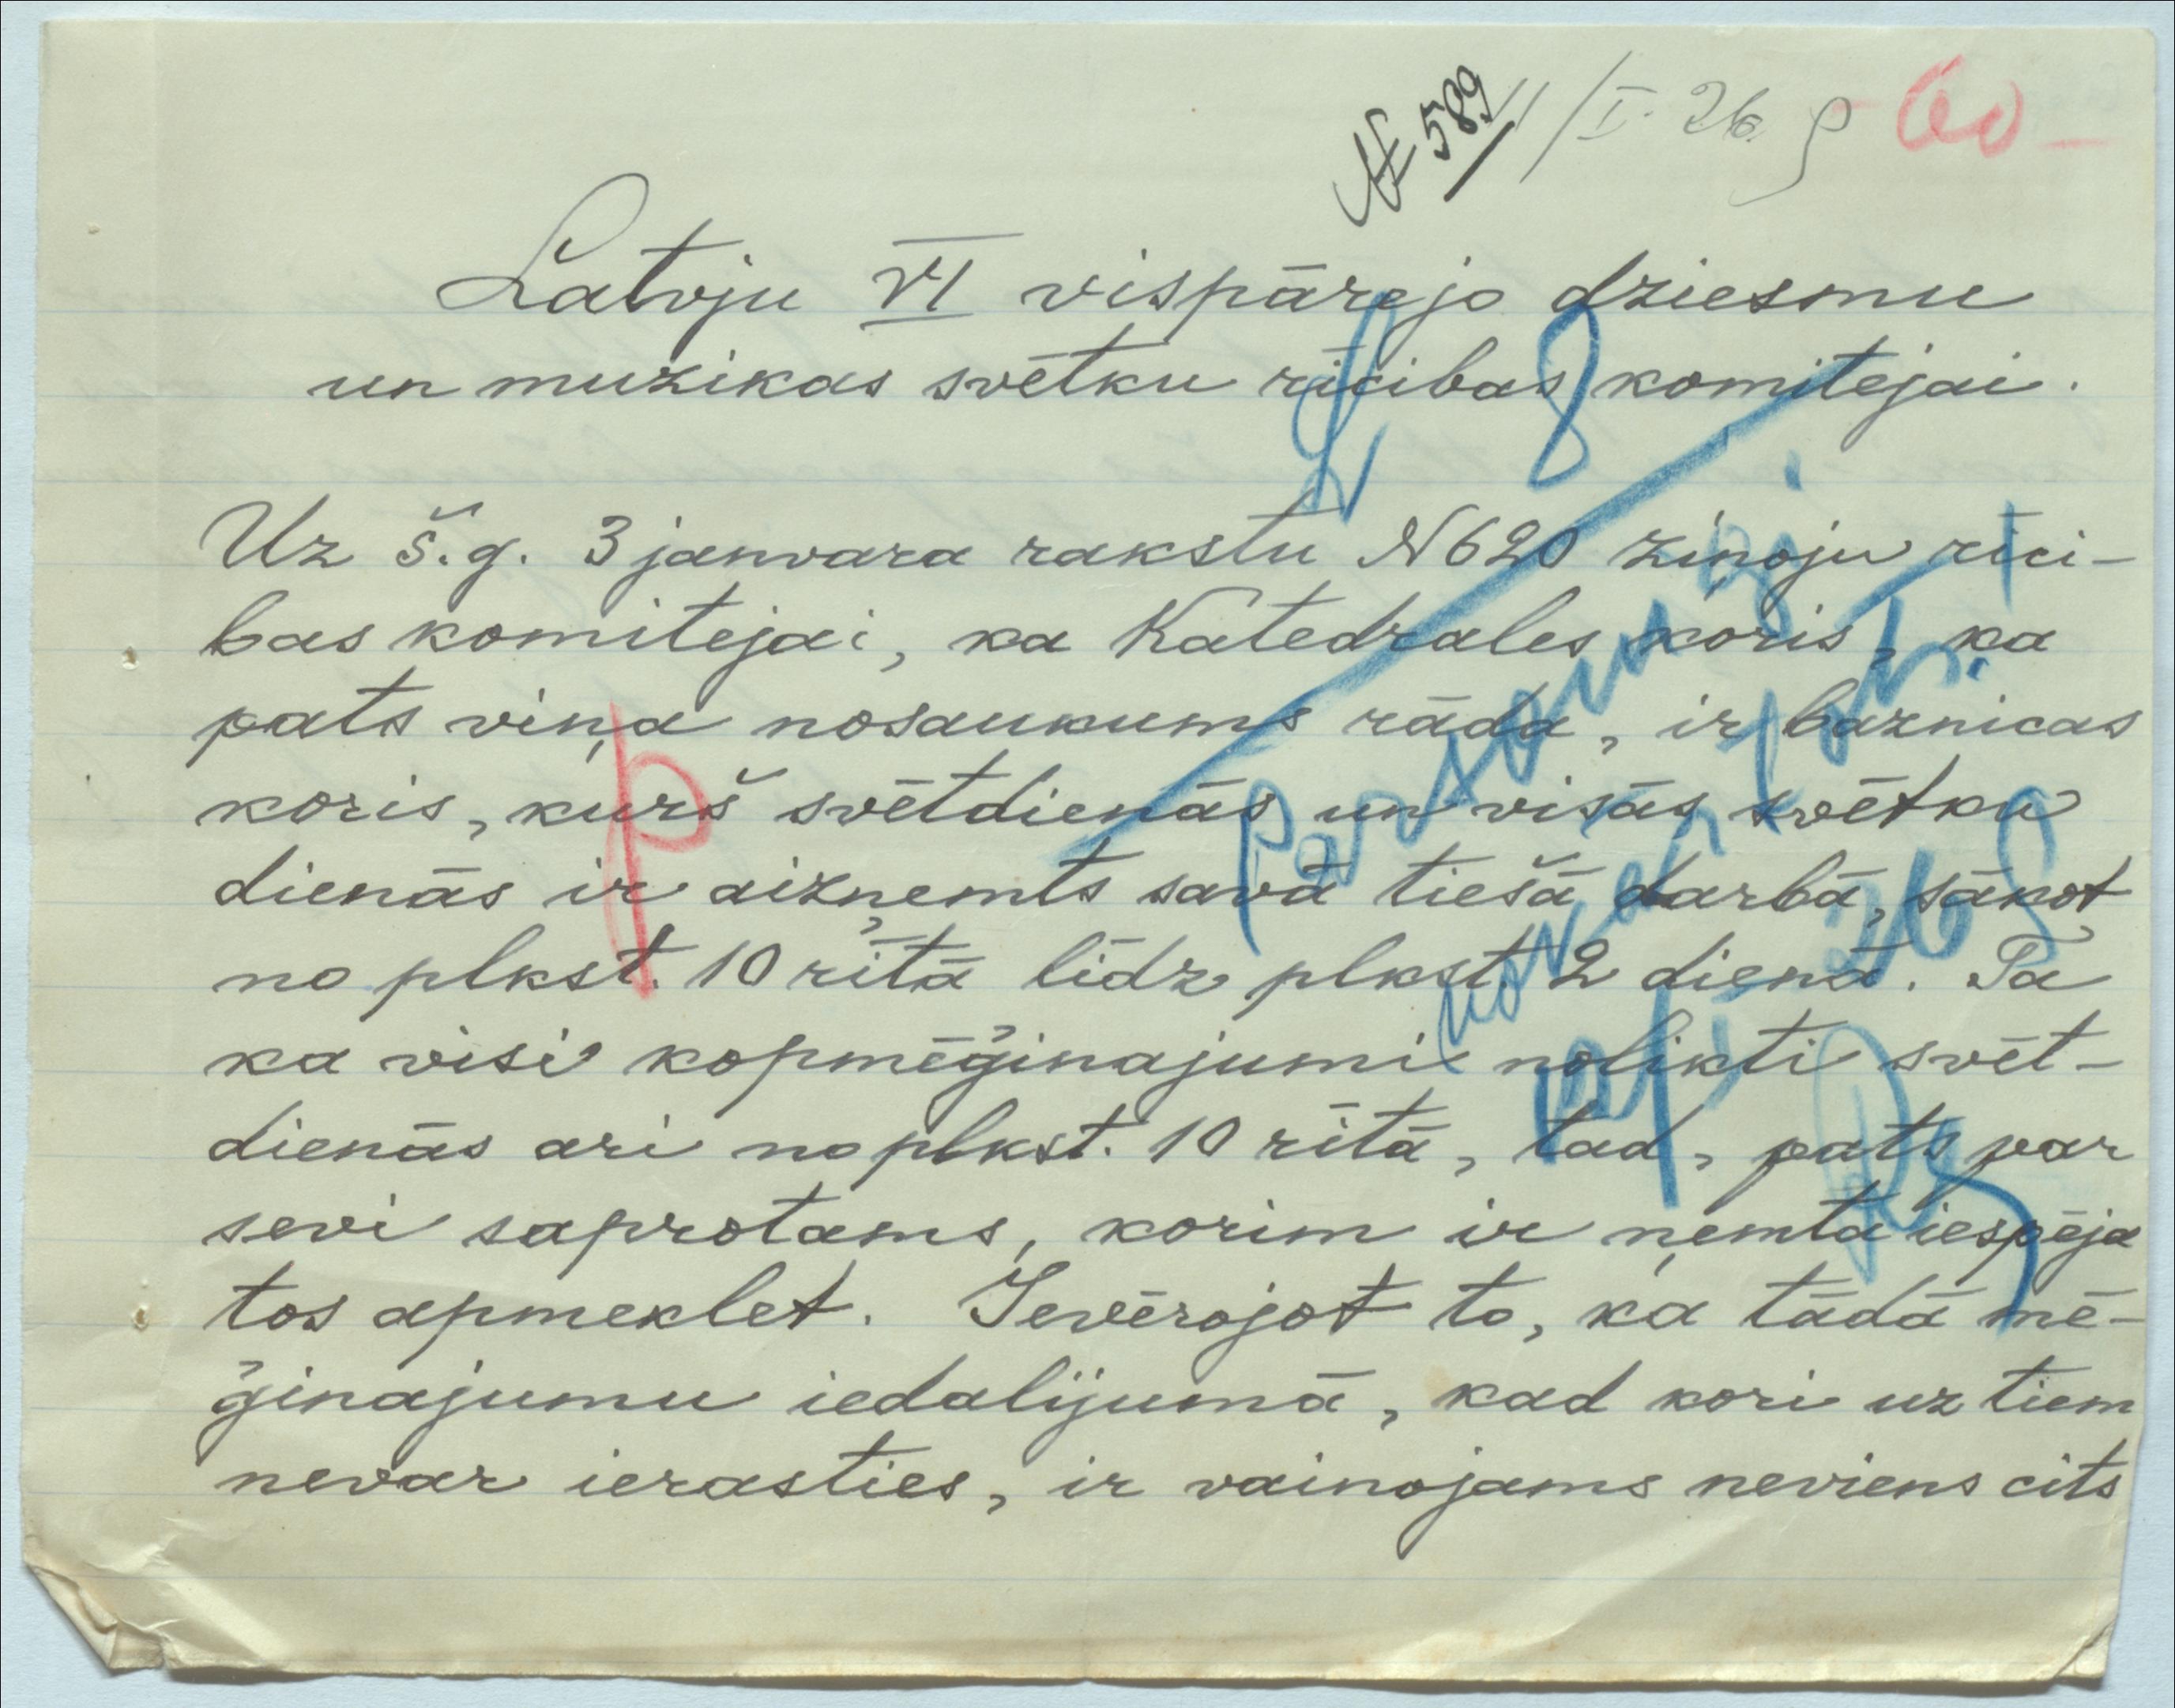 № 589 11/I. 26
60 -
Latvju VI vispārejo dziesmu
un muzikas svētku rīcibas komitejai.
Uz š.g. 3 janvara rakstu N 620 ziņoju rīci-
bas komitejai, ka Katedrales koris, ka
pats viņa nosaukums rāda, ir baznicas
koris, kurš svētdienās un visās svētku
dienās ir aizņemts savā tiešā darbā, sākot
no plkst. 10 rītā līdz plkst. 2 dienā. Ta
ka visi kopmēģinajumi nolikti svēt-
dienās ari no plkst. 10 rītā, tad, pats par
sevi saprotams, korim ir ņemta iespēja
tos apmeklet. Ievērojot to, ka tādā mē-
ģinajumu iedalijumā, kad kori uz tiem
nevar ierasties, ir vainojams neviens cits